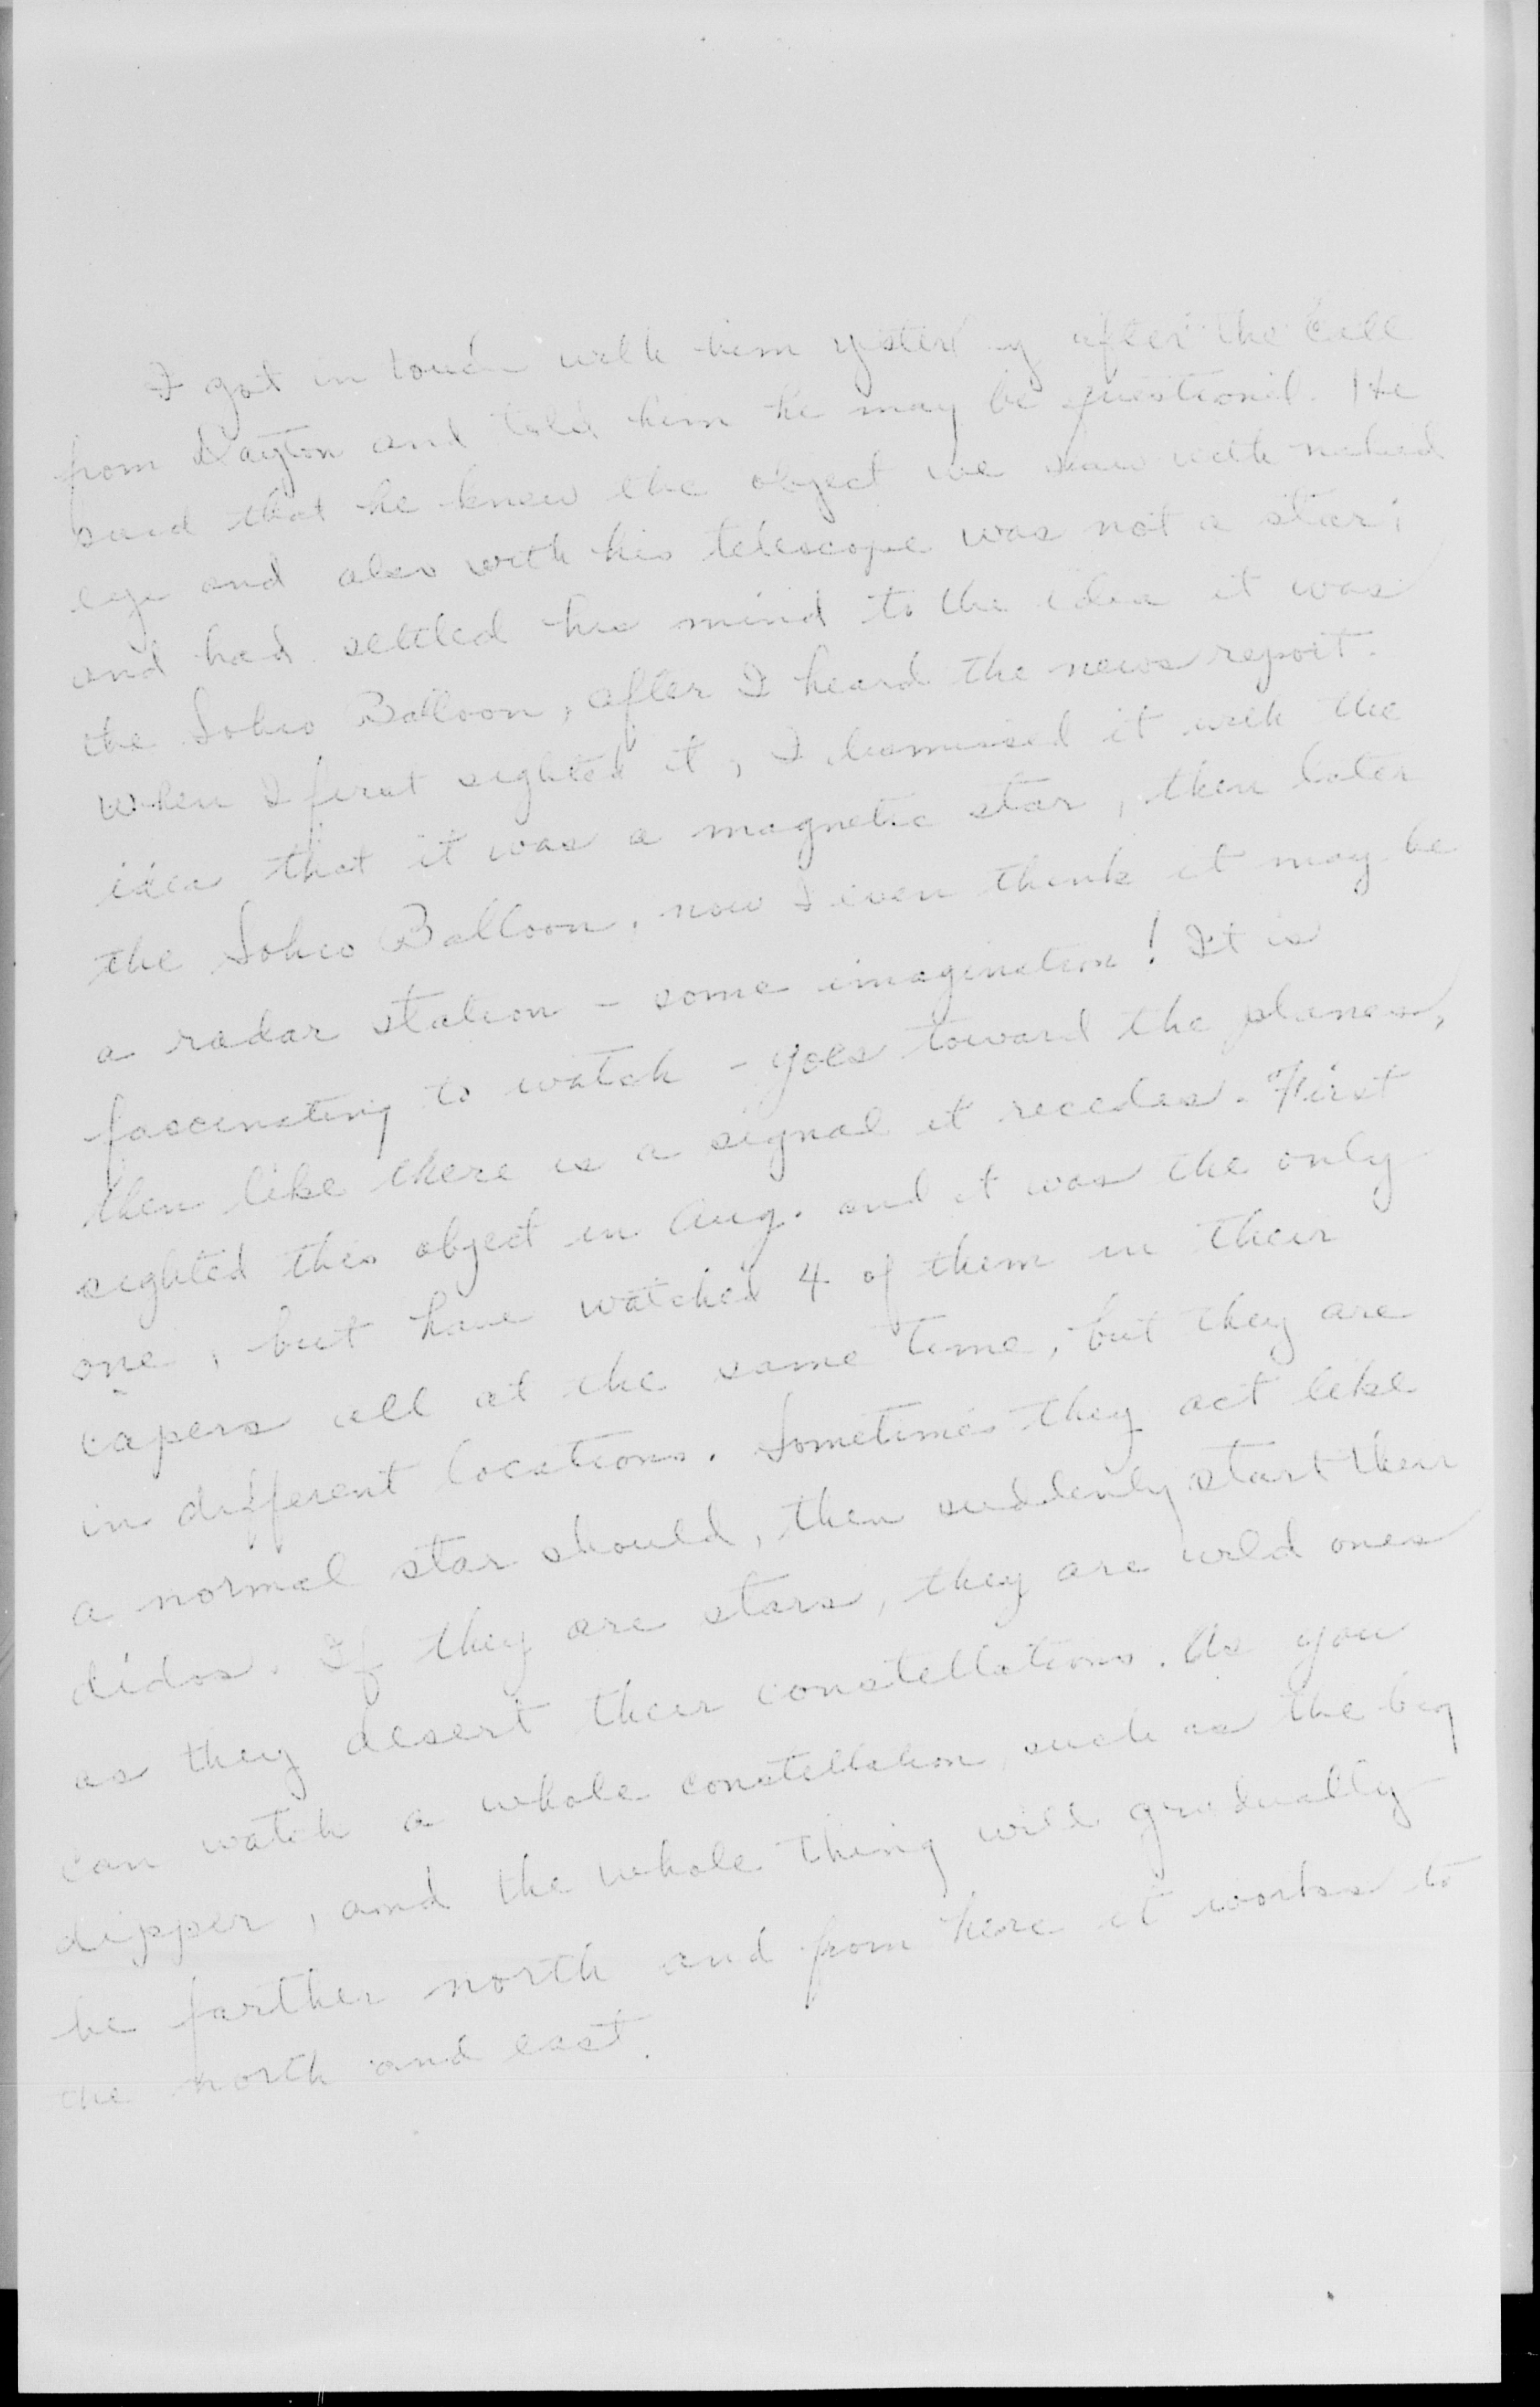 I got in touch with him yesterday after the call
from Dayton and told him he may be questioned. He
said that he knew the object we saw with naked
eye and also with his telescope was not a star;
and had settled his mind to the idea it was
the Sohio Balloon, after I heard the news report.
When I first sighted it, I dismissed it with the
idea that it was a magnetic star, then later
the Sohio Balloon, now I even think it may be
a radar station - some imagination! It is
fascinating to watch - goes toward the planes,
then like there is a signal it recedes. First
sighted this object in Aug. and it was the only
one, but have watched 4 of them in their
capers all at the same time, but they are
in different locations. Sometimes they act like
a normal star should, then suddenly start their
didos. If they are stars, they are wild ones
as they desert their constellations. As you
can watch a whole constellation, such as the big
dipper, and the whole thing will gradually
be farther north and from here it works to
the north and east.